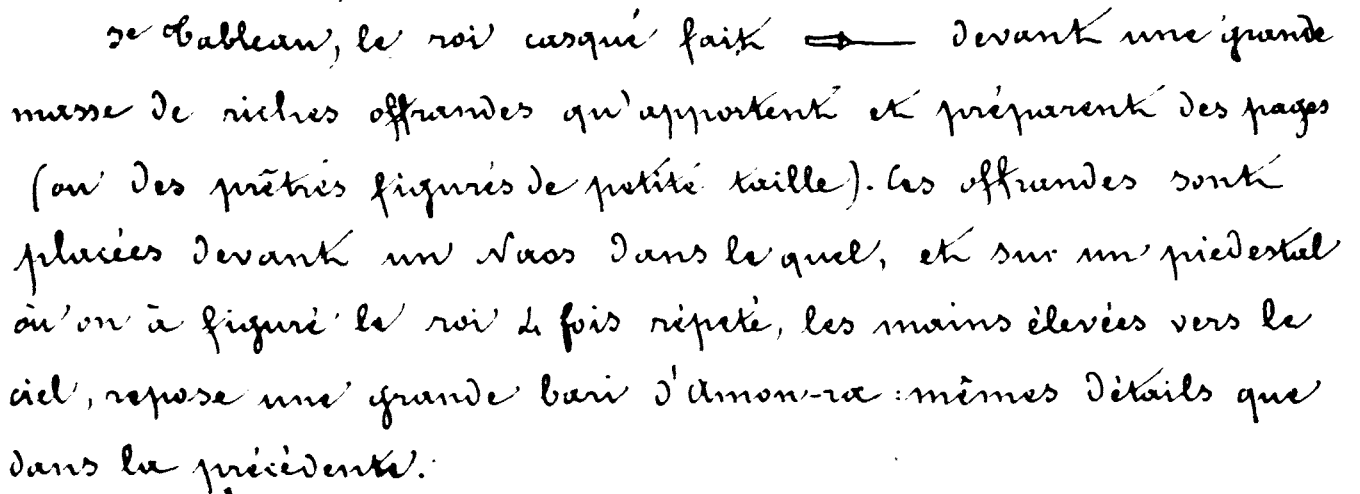 5e Tableau, le roi casqué fait devant une grande
masse de riches offrandes qu'apportent et préparent des pages
(ou des prêtres figurés de petite taille). Ces offrandes sont
placées devant un Naos dans le quel, et sur un piedestal
où on à figuré le roi 4 fois répeté, les mains élevées vers le
ciel, repose une grande bari d'Amon-ra : mêmes détails que
dans la précédente.